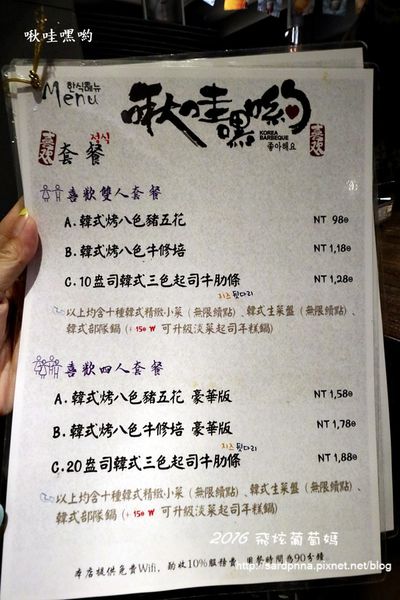 啾哇嘿喲
한식메뉴
Menu
啾哇嘿喲
KOREA
BARBEQUE
좋아해요
喜歡
喜歡
套餐
정식
喜歡雙人套餐
A. 韓式烤八色豬五花 NT 980
B. 韓式烤八色牛修培 NT 1,180
C. 10盎司韓式三色起司牛肋條 NT 1,280
치즈 뒷다리
以上均含十種韓式精緻小菜(無限續點)、韓式生菜盤(無限續點)、
韓式部隊鍋(+150₩ 可升級淡菜起司年糕鍋)
喜歡四人套餐
A. 韓式烤八色豬五花 豪華版 NT 1,580
B. 韓式烤八色牛修培 豪華版 NT 1,780
치즈 뒷다리
C. 20盎司韓式三色起司牛肋條 NT 1,880
以上均含十種韓式精緻小菜(無限續點)、韓式生菜盤(無限續點)、
韓式部隊鍋(+150₩ 可升級淡菜起司年糕鍋)
2016 飛炫葡萄媽
本店提供免費Wifi, 酌收10%服務費 用餐時間為90分鐘
http://sardpnna.pixnet.net/blog